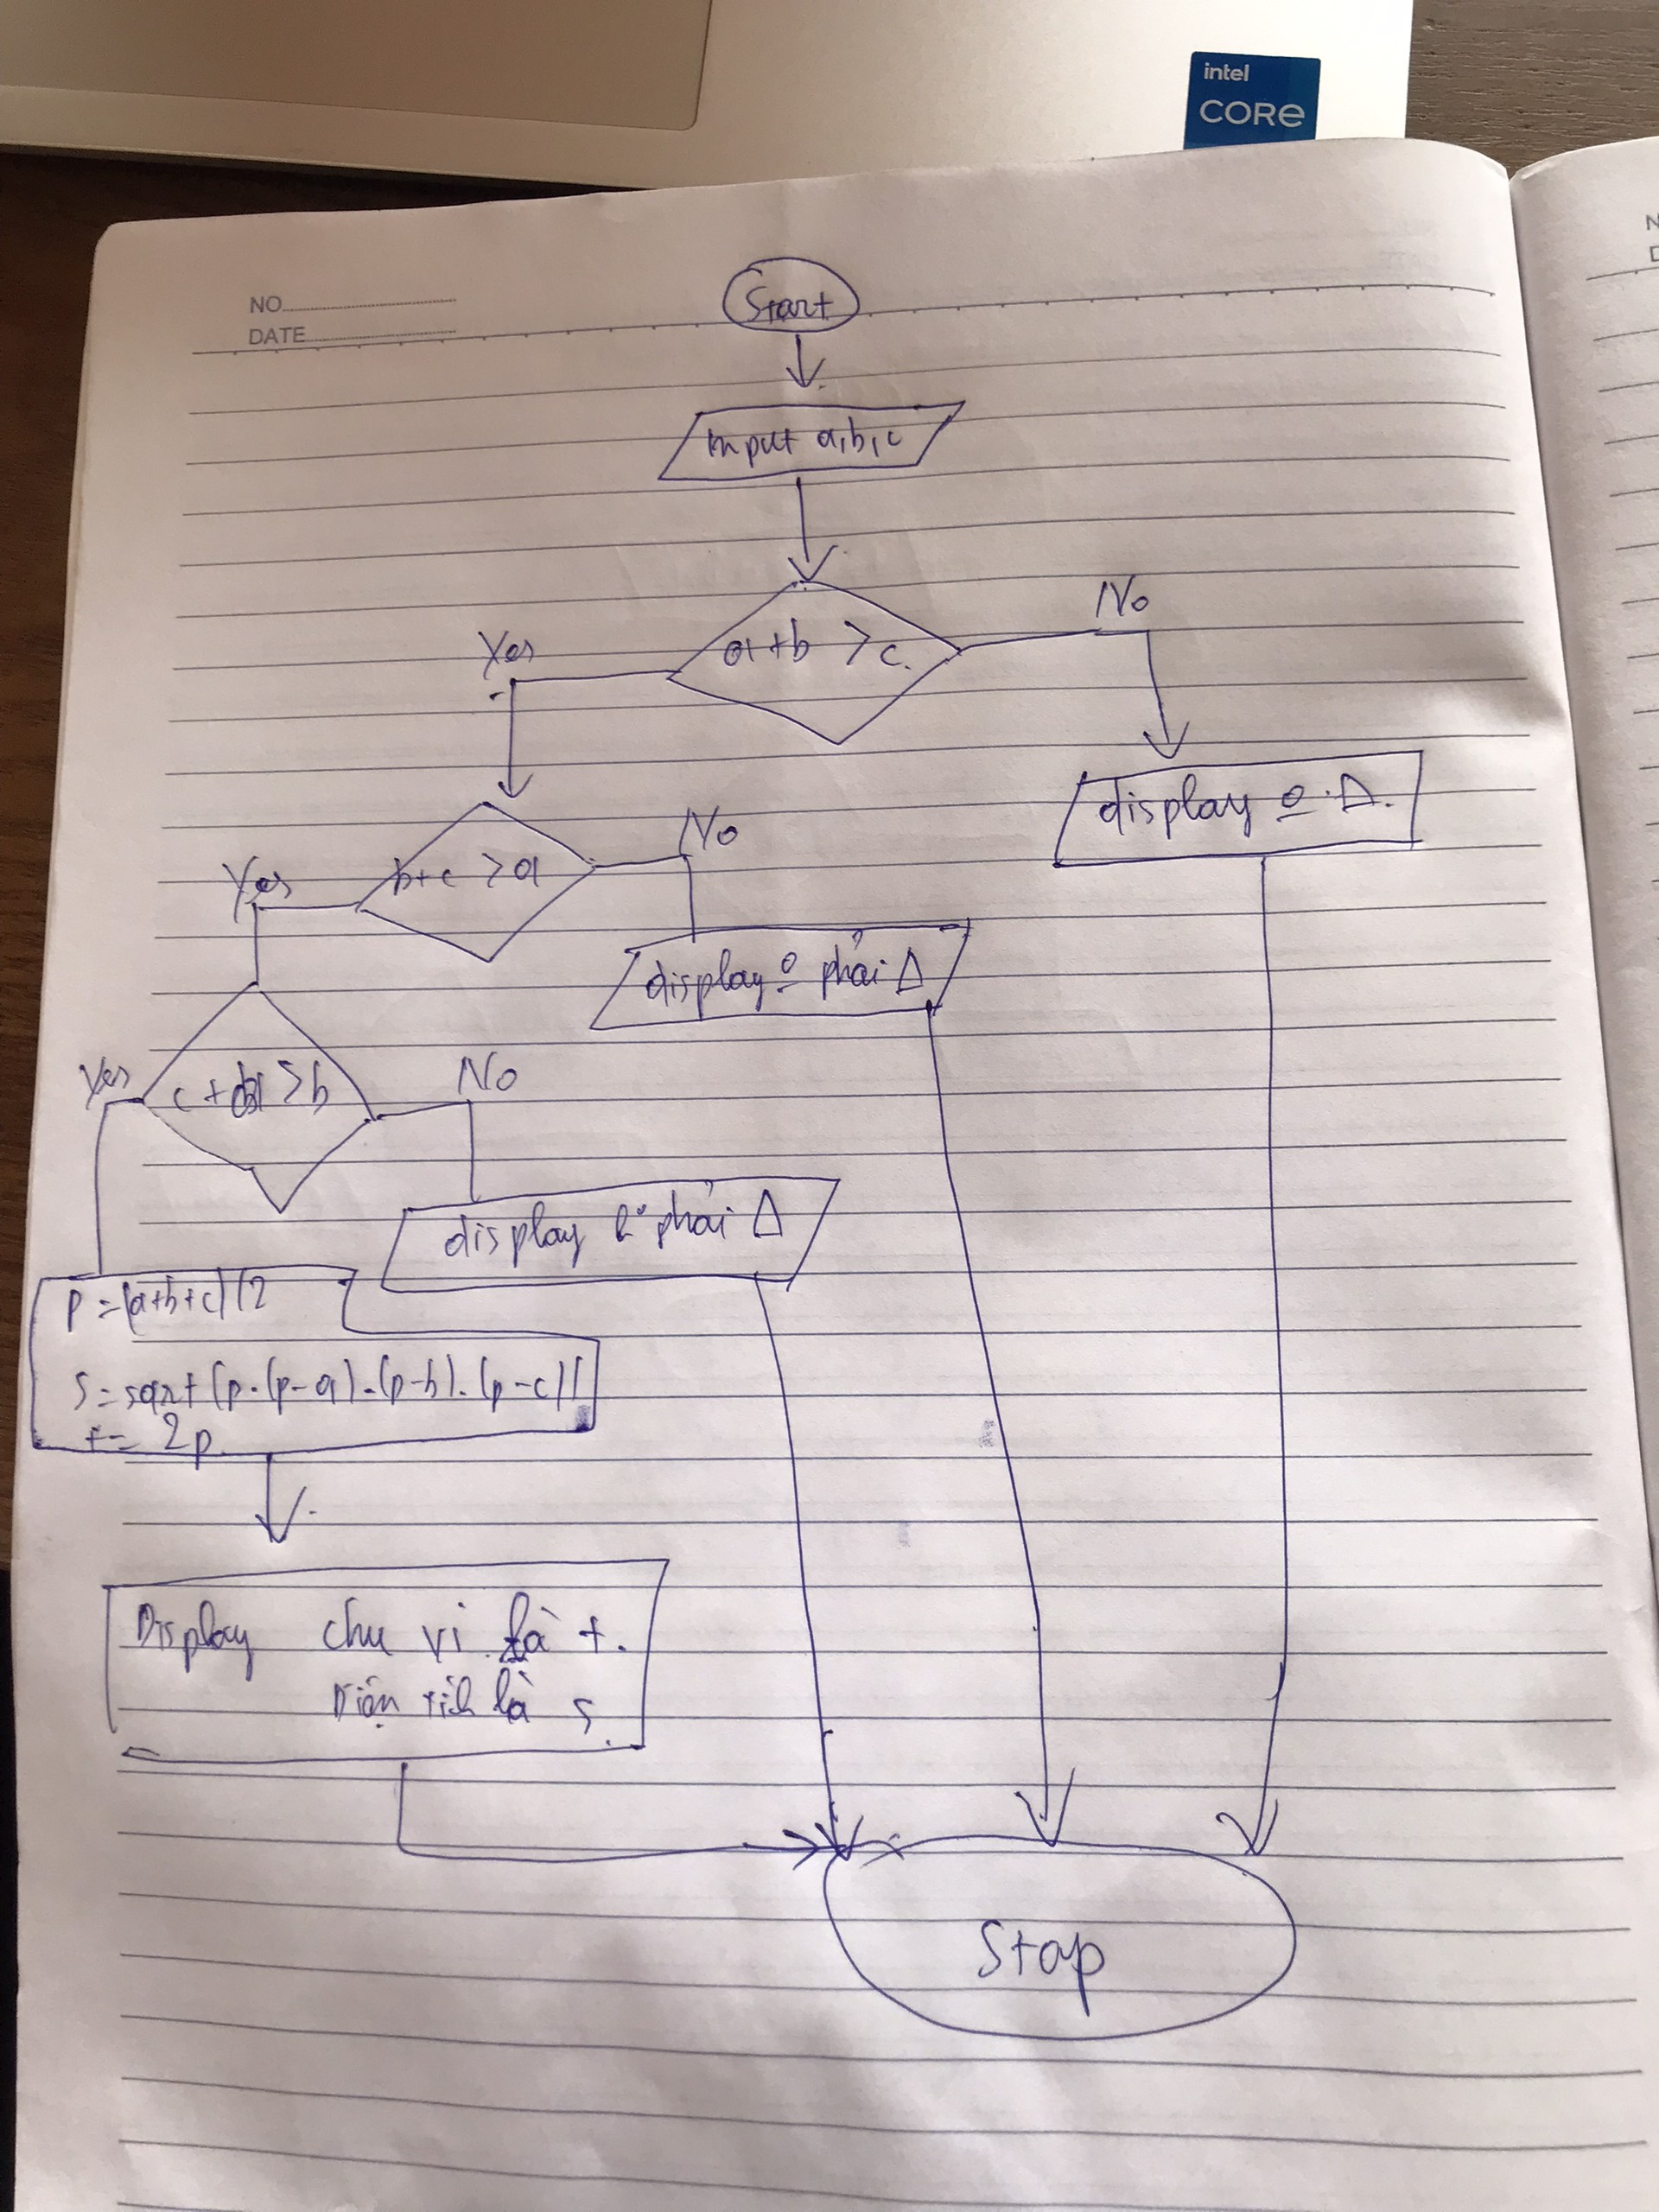 intel
CORE
NO
DATE
Start
Input a,b,c
a+b > c.
Yes
No
display o Δ.
b+c > a
Yes
No
display o phải Δ
c + a > b
Yes
No
display k° phải Δ
p = (a+b+c)/2
S = sqrt (p.(p-a).(p-b).(p-c))
t = 2p
Display chu vi là t.
Diện tích là S.
Stop